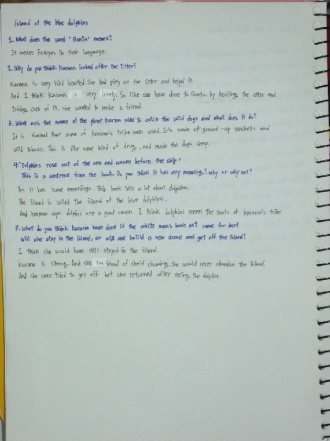 Island of the blue dolphins
1. What does the word "Rontu" means?
It means Foxeyes in their language.
2. Why do you think Karana looked after the otter?
Karana is very kind hearted. She had pity on the otter and helped it.
And I think Karana is very lonely. So, like she have done to Rontu by healing the otter and
taking care of it, she wanted to make a friend.
3. What was the name of the plant karana used to catch the wild dogs and what does it do?
It is that some of karana's tribe men used. It's made of ground-up seashells and
wild tobacco. This is the some kind of drug, and made the dogs sleep.
4. "Dolphins rose out of the sea and swam before the ship."
This is a sentence from the book. Do you think it has any meaning? why or why not?
Yes. It has some meanings. This book tells a lot about dolphins.
The island is called the Island of the blue dolphins.
And karana says dolphins are a good omen. I think dolphins mean the souls of karana's tribe.
5. What do you think karana have done if the white men's have not come for her?
Will she stay in the island, or will she build a new canoe and get off the island?
I think she would have still stayed in the island.
Karana is strong. And she is of She would never abandon the island.
And she ever tried to get off but she returned after seeing the dolphins.